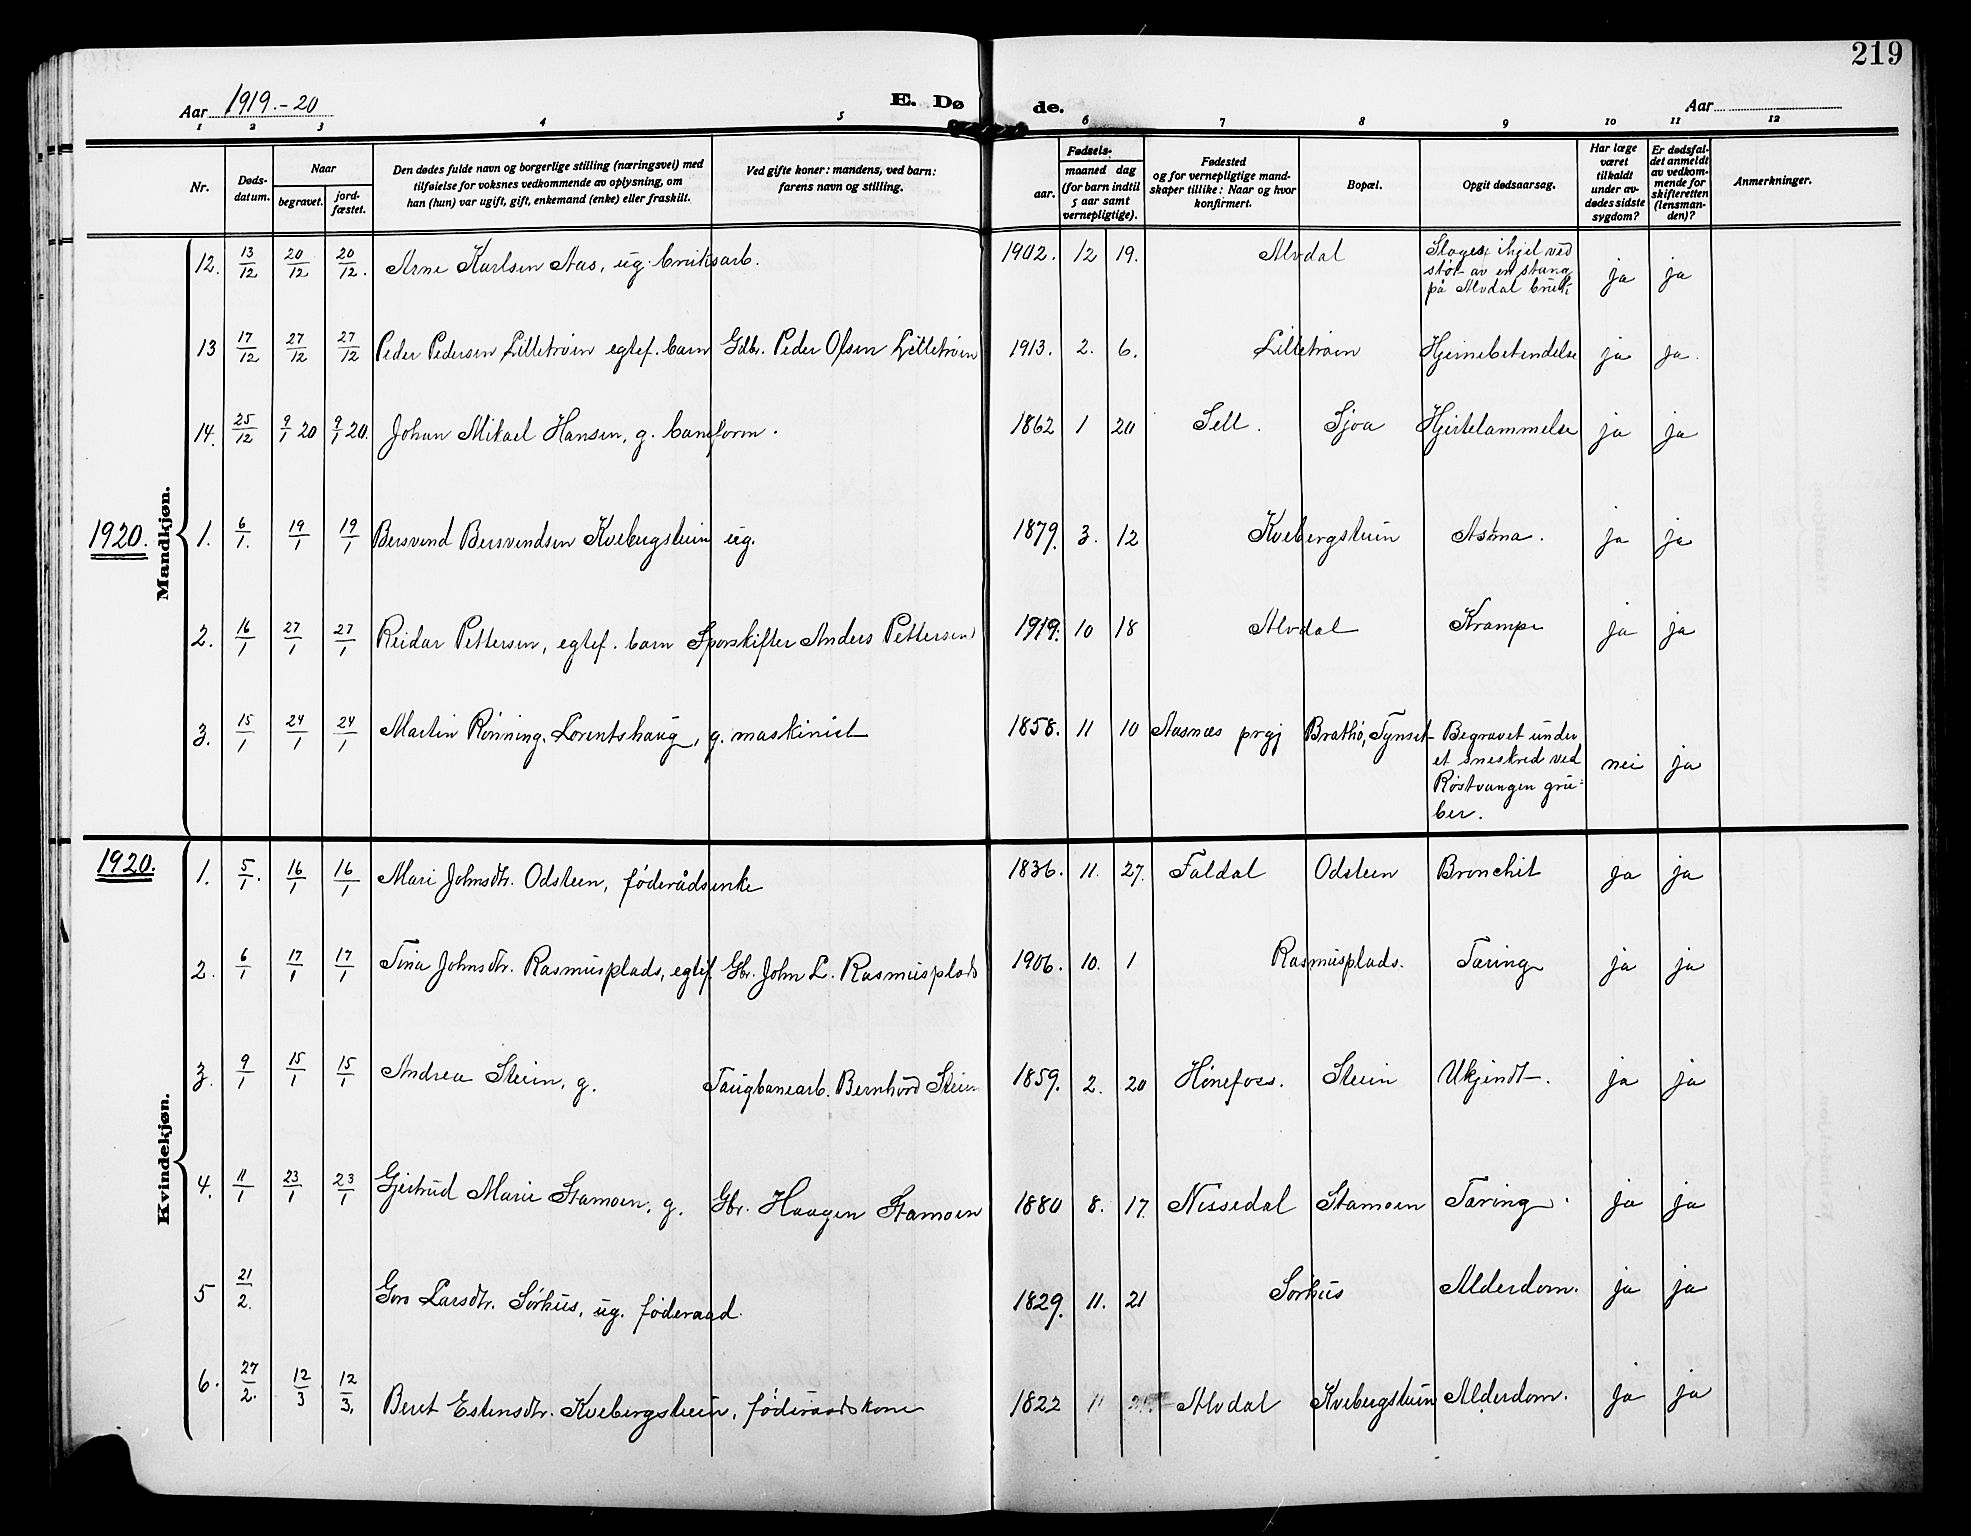 219
Aar 1919.-20 E. Dø de. Aar
1 2 3 4 5 6 7 8 9 10 11 12
Nr.
Døds-
datum.
Naar
begravet.
jord-
fæstet.
Den dødes fulde navn og borgerlige stilling (næringsvei) med
tilføielse for voksnes vedkommende av oplysning, om
han (hun) var ugift, gift, enkemand (enke) eller fraskilt.
Ved gifte koner: mandens, ved barn:
farens navn og stilling.
Fødsels-
aar. maaned dag
(for barn indtil
5 aar samt
vernepligtige).
Fødested
og for vernepligtige mand-
skaper tillike: Naar og hvor
konfirmert.
Bopæl.
Opgit dødsaarsag.
Har læge
været
tilkaldt
under av-
dødes sidste
sygdom?
Er dødsfal-
det anmeldt
av vedkom-
mende for
skifteretten
(lensman-
den)?
Anmerkninger.
Mandkjøn.
12. 13/12 20/12 20/12. Arne Karlsen Aas, ug. bruksarb. 1902. 12 19. Alvdal Slaget ihjel ved
støt av en stang
på Alvdal bruk ja ja
13 17/12 27/12 27/12 Peder Pedersen Lilletrøen egtef. barn Gdbr. Peder Olsen Lilletrøen 1913. 2. 6. Lilletrøen Hjernebetendelse ja ja.
14. 25/12 9/1 20 9/1 20. Johan Mikael Hansen, g. baneform. 1862 1 20 Sell. Sjoa Hjertelammelse ja ja
1920.
1. 6/1. 19/1 19/1 Bersvend Bersvendsen Kvebergsteien ug. 1879. 3. 12 Kvebergsteien Astma. ja ja
2. 16/1 27/1 27/1 Reidar Pettersen, egtef. barn Sporskifter Anders Pettersen 1919. 10 18 Alvdal Krampe ja ja
3. 15/1 24/1 24/1 Martin Rønning. Lorentshaug, g. maskinist 1858. 11 10 Aasnæs prgj Brathø, Tynset Begravet under
et sneskred ved
Røstvangen gru-
ber. nei ja
1920.
Kvindekjøn.
1. 5/1. 16/1 16/1 Mari Johnsdtr. Odsteen, føderådsenke 1836. 11. 27. Faldal Odsteen Bronchit ja ja
2. 6/1 17/1 17/1 Tina Johnsdtr. Rasmusplads, egtef Gbr. John L. Rasmusplads 1906. 10. 1 Rasmusplads. Tæring ja ja
3. 9/1 15/1 15/1 Andrea Steien, g. Taugbanearb. Bernhard Steien 1859. 2. 20 Hønefoss. Steien Ukjendt. ja ja
4. 11/1 23/1 23/1 Gjertrud Marie Stamoen, g. Gbr. Haagen Stamoen 1880 8. 17. Nissedal Stamoen Tæring. ja ja
5 21/2. Goro Larsdtr. Sørhus, ug. føderaad. 1829. 11. 21 Sørhus Alderdom. ja ja
6. 27/2. 12/3 12/3. Beret Estensdtr. Kvebergsteien, føderaadskone 1822 11 Alvdal Kvebergsteien Alderdom. ja ja